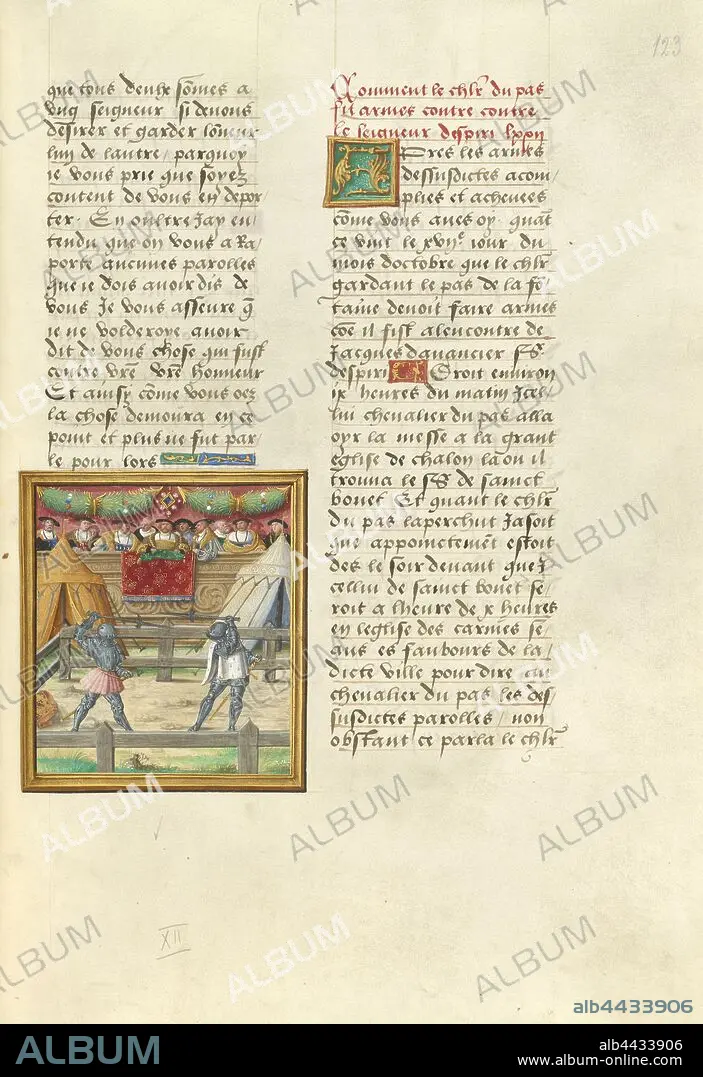 123
que tous deux sommes a
ung seigneur si devons
desirer et garder loneur
lun de lautre parquoy
je vous prie que soyez
content de vous en depor
ter. En oultre Jay en/
tendu que on vous a Ra/
porte aucunes parolles
que je dois avoir dis de
vous Je vous asseure q
je ne volderoye avoir
dit de vous chose qui fust
contre vre vre honneur
Et ainsy come vous oez
la chose demoura en ce
point et plus ne fut par/
le pour lors
Comment le chlr du pas
fit armes contre contre
le seigneur despiri lxxii
Apres les armes
dessusdictes acom/
plies et achevees
come vous aves oy. quat
ce vint le xvije jour du
mois doctobre que le chlr
gardant le pas de la fo/
taine devoit faire armes
coe il fist alencontre de
Jacques davancier sr.
despiri Droit environ
ix heures du matin Icel/
lui chevalier du pas alla
oyr la messe a la grant
eglise de chalon la ou il
trouva le sr de sainct
bouet Et quant le chlr
du pas laperchut Jasoit
que appointement estoit
des le soir devant que J
cellui de sainct bouet se/
roit a lheure de x heures
en leglise des carmes se/
ans es faubours de la/
dicte ville pour dire au
chevalier du pas les des/
susdictes parolles / non
obstant ce parla le chlr
XII
ALBUM
alb4433906
ALBUM
alb4433906
www.album-online.com